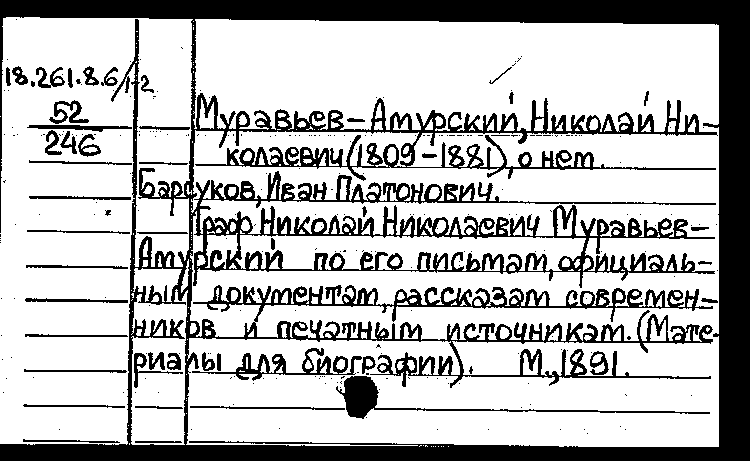 18.261.8.6/1-2
52
246
Муравьев-Амурский, Николай Ни-
колаевич (1809-1881), о нем.
Барсуков, Иван Платонович.
Граф Николай Николаевич Муравьев-
Амурский по его письмам, официаль=
ным документам, рассказам современ=
ников и печатным источникам. (Мате-
риалы для биографии). М., 1891.